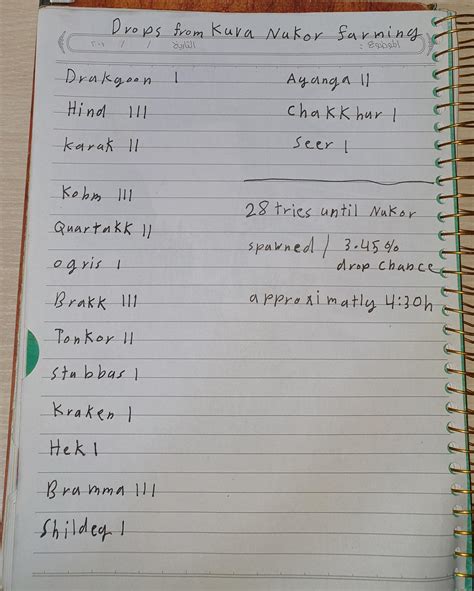 Drops from Kuva Nukor farming
Drakgoon I
Hind III
Karak II
Kohm III
Quartakk II
ogris I
Brakk III
Tonkor II
Stubbas I
Kraken I
Hek I
Bramma III
Shildeg I
Ayanga II
Chakkhur I
Seer I
28 tries until Nukor
spawned / 3.45%
drop chance
approximatly 4:30h